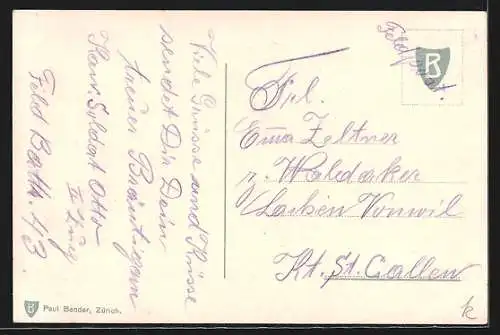 Viele Grüsse und Küsse
sendet Dir Dein
treuer Bräutigam
Kan. Soldat Otto
II Zug
Feld Batt. 43.
Feldpost.
B
Frl.
Emma Zeltner
z. Waldaker
Lachen Vonwil
Kt. St. Gallen
B Paul Bender, Zürich.